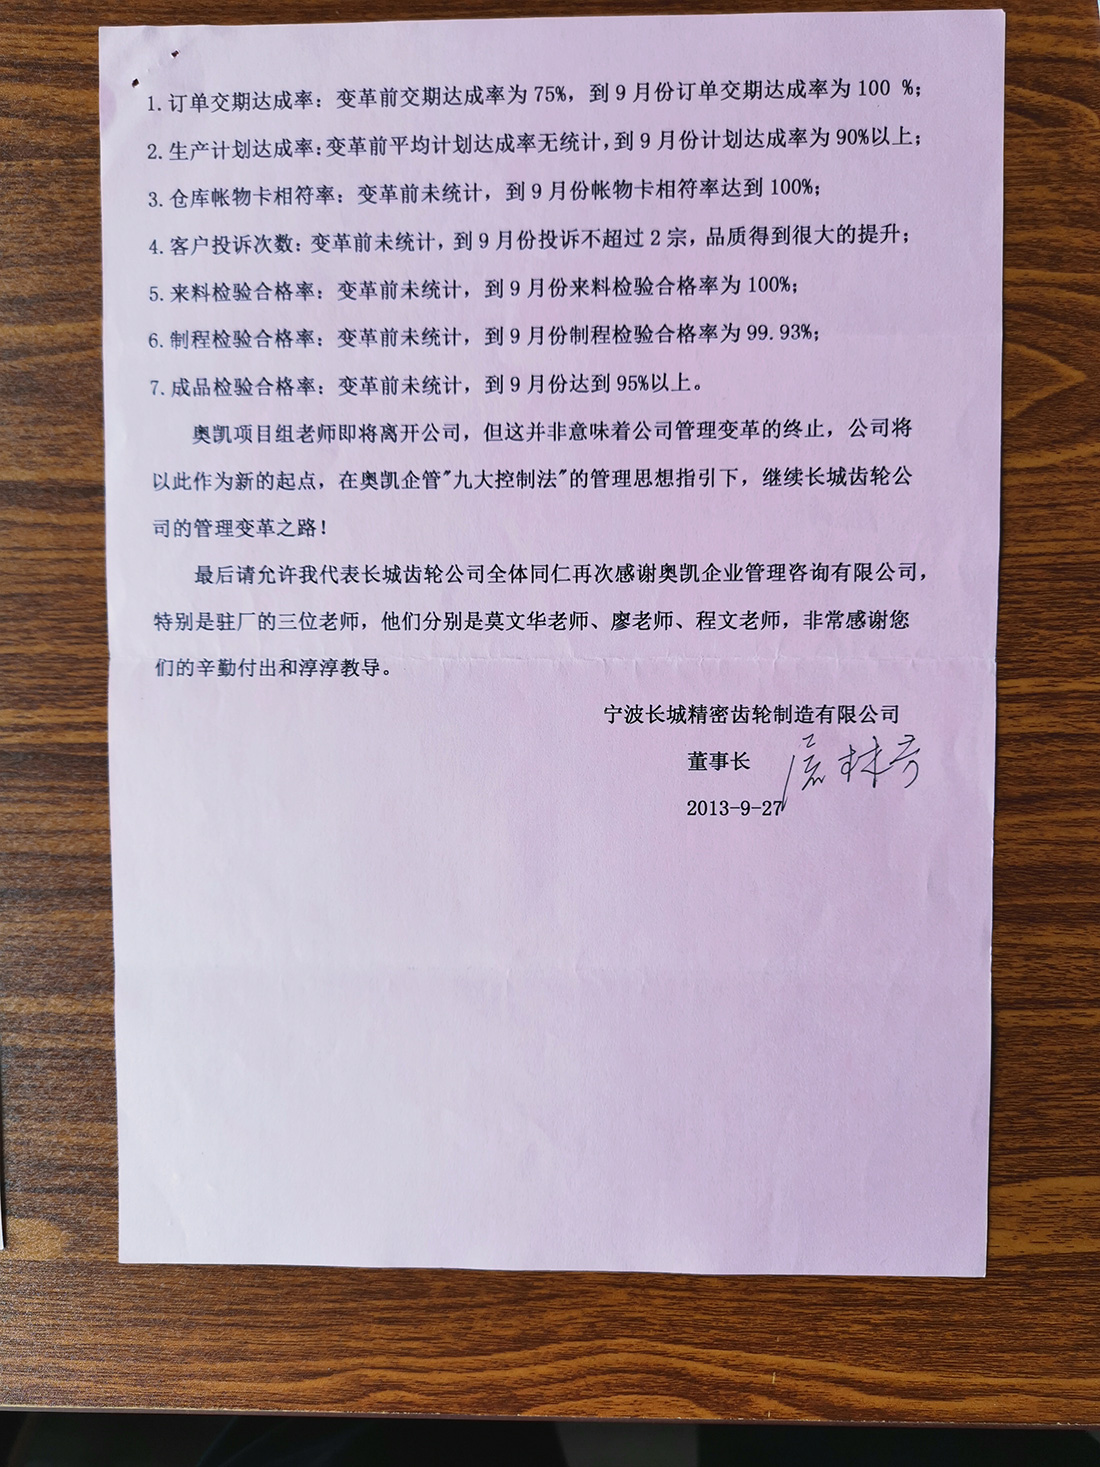 1.订单交期达成率：变革前交期达成率为75%，到9月份订单交期达成率为100 %；
2.生产计划达成率:变革前平均计划达成率无统计,到9月份计划达成率为90%以上；
3.仓库帐物卡相符率：变革前未统计，到9月份帐物卡相符率达到100%；
4.客户投诉次数：变革前未统计，到9月份投诉不超过2宗，品质得到很大的提升；
5.来料检验合格率：变革前未统计，到9月份来料检验合格率为100%；
6.制程检验合格率：变革前未统计，到9月份制程检验合格率为99.93%；
7.成品检验合格率：变革前未统计，到9月份达到95%以上。
奥凯项目组老师即将离开公司，但这并非意味着公司管理变革的终止，公司将
以此作为新的起点，在奥凯企管"九大控制法"的管理思想指引下，继续长城齿轮公
司的管理变革之路！
最后请允许我代表长城齿轮公司全体同仁再次感谢奥凯企业管理咨询有限公司，
特别是驻厂的三位老师，他们分别是莫文华老师、廖老师、程文老师，非常感谢您
们的辛勤付出和淳淳教导。
宁波长城精密齿轮制造有限公司
董事长
2013-9-27